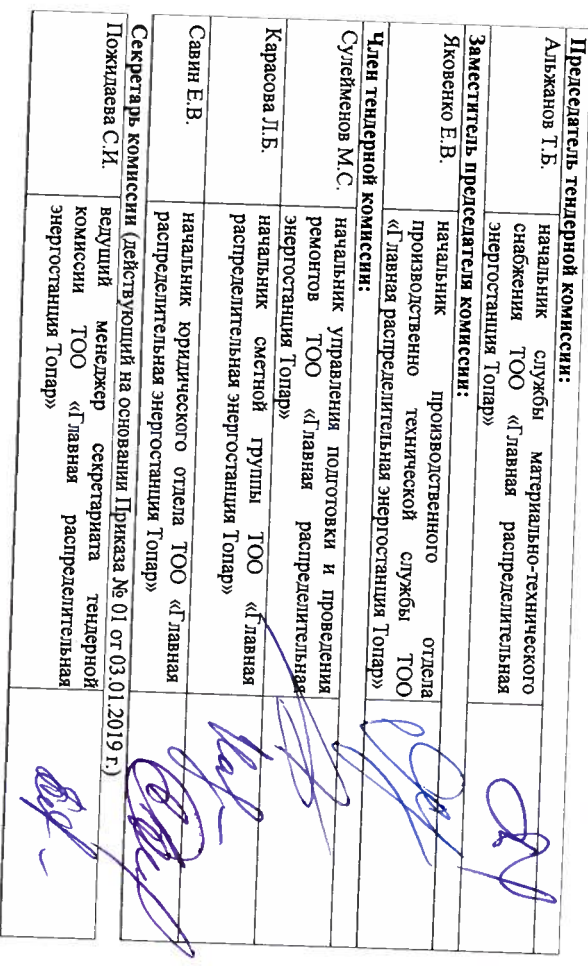 Председатель тендерной комиссии:
Альжанов Т.Б.
начальник службы материально-технического
снабжения ТОО «Главная распределительная
энергостанция Топар»
Заместитель председателя комиссии:
Яковенко Е.В.
начальник производственного отдела
производственно технической службы ТОО
«Главная распределительная энергостанция Топар»
Член тендерной комиссии:
Сулейменов М.С.
начальник управления подготовки и проведения
ремонтов ТОО «Главная распределительная
энергостанция Топар»
Карасова Л.Б.
начальник сметной группы ТОО «Главная
распределительная энергостанция Топар»
Савин Е.В.
начальник юридического отдела ТОО «Главная
распределительная энергостанция Топар»
Секретарь комиссии (действующий на основании Приказа № 01 от 03.01.2019 г.)
Пожидаева С.И.
ведущий менеджер секретариата тендерной
комиссии ТОО «Главная распределительная
энергостанция Топар»